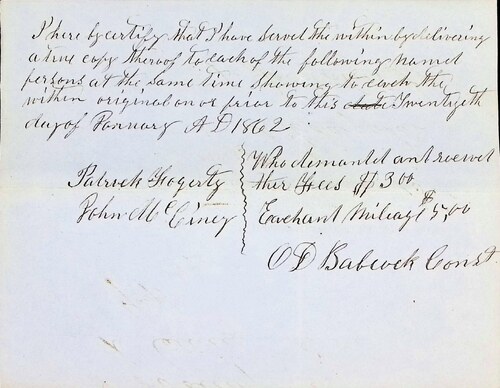 I here by certify that I have served the within by delivering
a true copy thereof to each of the following named
persons at the same time showing to each the
within original on or prior to this date Twentyeth
day of January A D 1862
Patrick Fogerty
John Mc
Who demanded and received
ther Fees $ 3 00
Each and Mileag $ 5,00
O D Babcock Const